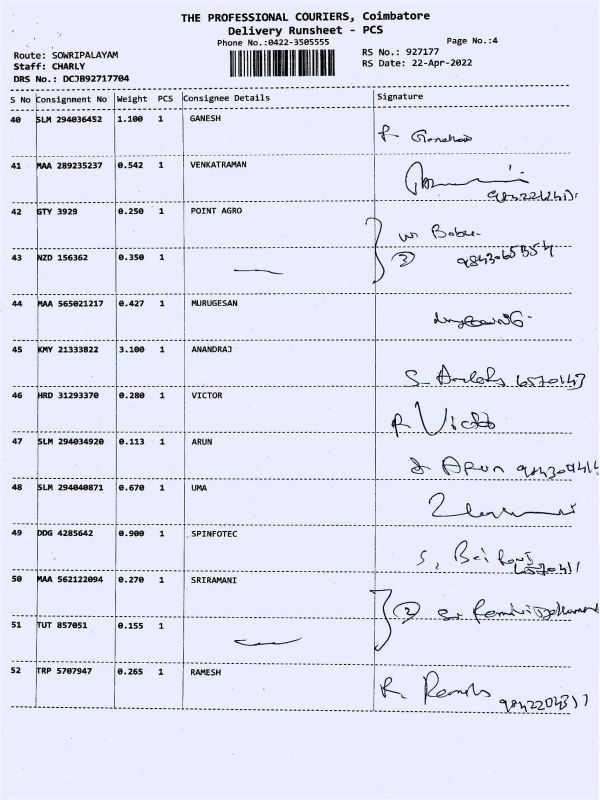 THE PROFESSIONAL COURIERS, Coimbatore
Delivery Runsheet - PCS
Phone No.:0422-3505555
Page No.:4
Route: SOWRIPALAYAM
RS No.: 927177
Staff: CHARLY
RS Date: 22-Apr-2022
DRS No.: DCJB92717704
S No Consignment No Weight PCS Consignee Details Signature
40 SLM 294036452 1.100 1 GANESH
41 MAA 289235237 0.542 1 VENKATRAMAN
42 GTY 3929 0.250 1 POINT AGRO
43 NZD 156362 0.350 1
44 MAA 565021217 0.427 1 MURUGESAN
45 KMY 21333822 3.100 1 ANANDRAJ
46 HRD 31293370 0.280 1 VICTOR
47 SLM 294034920 0.113 1 ARUN
Arun
48 SLM 294040871 0.670 1 UMA
49 DDG 4285642 0.900 1 SPINFOTEC
50 MAA 562122094 0.270 1 SRIRAMANI
51 TUT 857051 0.155 1
52 TRP 5707947 0.265 1 RAMESH